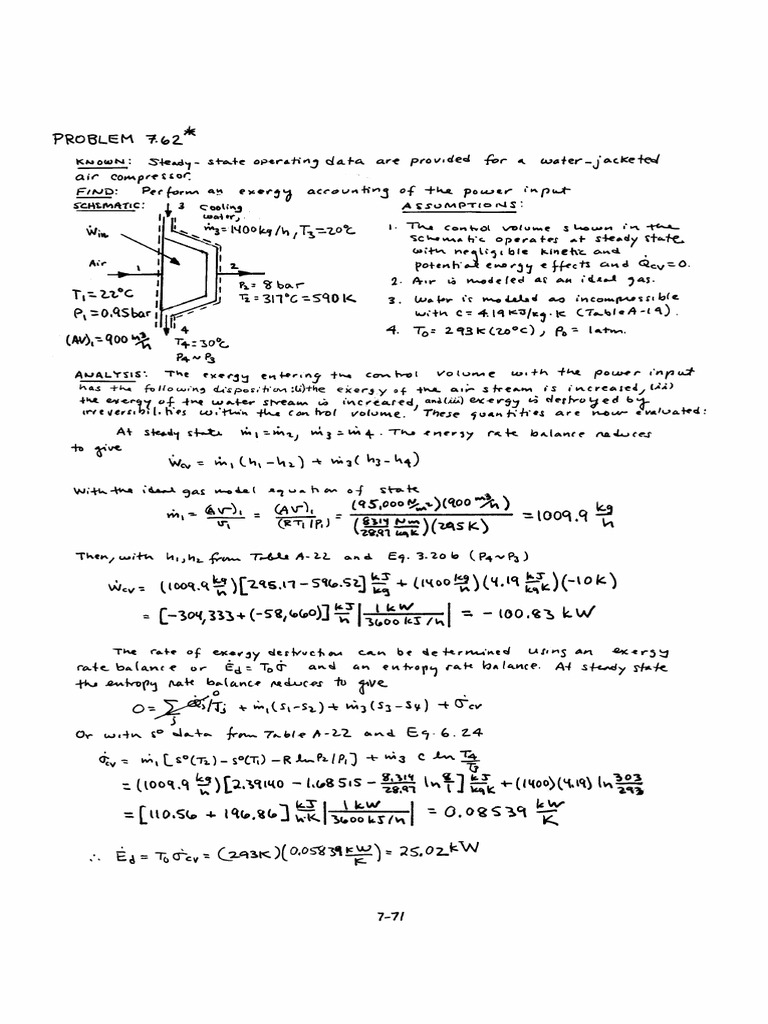 PROBLEM 7.62*
KNOWN: Steady-state operating data are provided for a water-jacketed
air compressor.
FIND: Perform an exergy accounting of the power input
SCHEMATIC:
3 Cooling
water,
ṁ3=1400kg/h, T3=20°C
Ẇin
Air
1
2
T1=22°C
P1=0.95bar
(AV)1=900 m³/h
P2= 8 bar
T2= 317°C=590K
4
T4=30°C
P4~P3
ASSUMPTIONS:
1. The control volume shown in the
schematic operates at steady state
with negligible kinetic and
potential energy effects and Q̇cv=0.
2. Air is modeled as an ideal gas.
3. Water is modeled as incompressible
with c= 4.19 kJ/kg·K (Table A-19).
4. T0= 293K(20°C), P0= 1atm.
ANALYSIS: The exergy entering the control volume with the power input
has the following disposition:(i)the exergy of the air stream is increased,(ii)
the exergy of the water stream is increased, and(iii) exergy is destroyed by
irreversibilities within the control volume. These quantities are now evaluated:
At steady state ṁ1=ṁ2, ṁ3=ṁ4. The energy rate balance reduces
to give
Ẇcv = ṁ1(h1-h2) + ṁ3(h3-h4)
With the ideal gas model equation of state
ṁ1 = (AV)1/v1 = (AV)1/(RT1/P1) = (95,000 N/m²)(900 m³/h)/((8314/28.97 Nm/kgK)(295K)) = 1009.9 kg/h
Then, with h1,h2 from Table A-22 and Eq. 3.20b (P4~P3)
Ẇcv= (1009.9 kg/h)[295.17-596.52] kJ/kg + (1400 kg/h)(4.19 kJ/kgK)(-10K)
= [-304,333+(-58,660)] kJ/h |1kW/3600kJ/h| = -100.83 kW
The rate of exergy destruction can be determined using an exergy
rate balance or Ėd=T0σ̇ and an entropy rate balance. At steady state
the entropy rate balance reduces to give
0 = Σj Q̇j/Tj⁰ + ṁ1(s1-s2) + ṁ3(s3-s4) + σ̇cv
Or with s° data from Table A-22 and Eq. 6.24
σ̇cv = ṁ1[s°(T2)-s°(T1)-R ln P2/P1] + ṁ3 c ln T4/T3
= (1009.9 kg/h)[2.39140-1.68515- 8.314/28.97 ln 8/1] kJ/kgK + (1400)(4.19) ln 303/293
= [110.56 + 196.86] kJ/h·K |1kW/3600kJ/h| = 0.08539 kW/K
∴ Ėd = T0σ̇cv = (293K)(0.05839 kW/K) = 25.02 kW
7-71